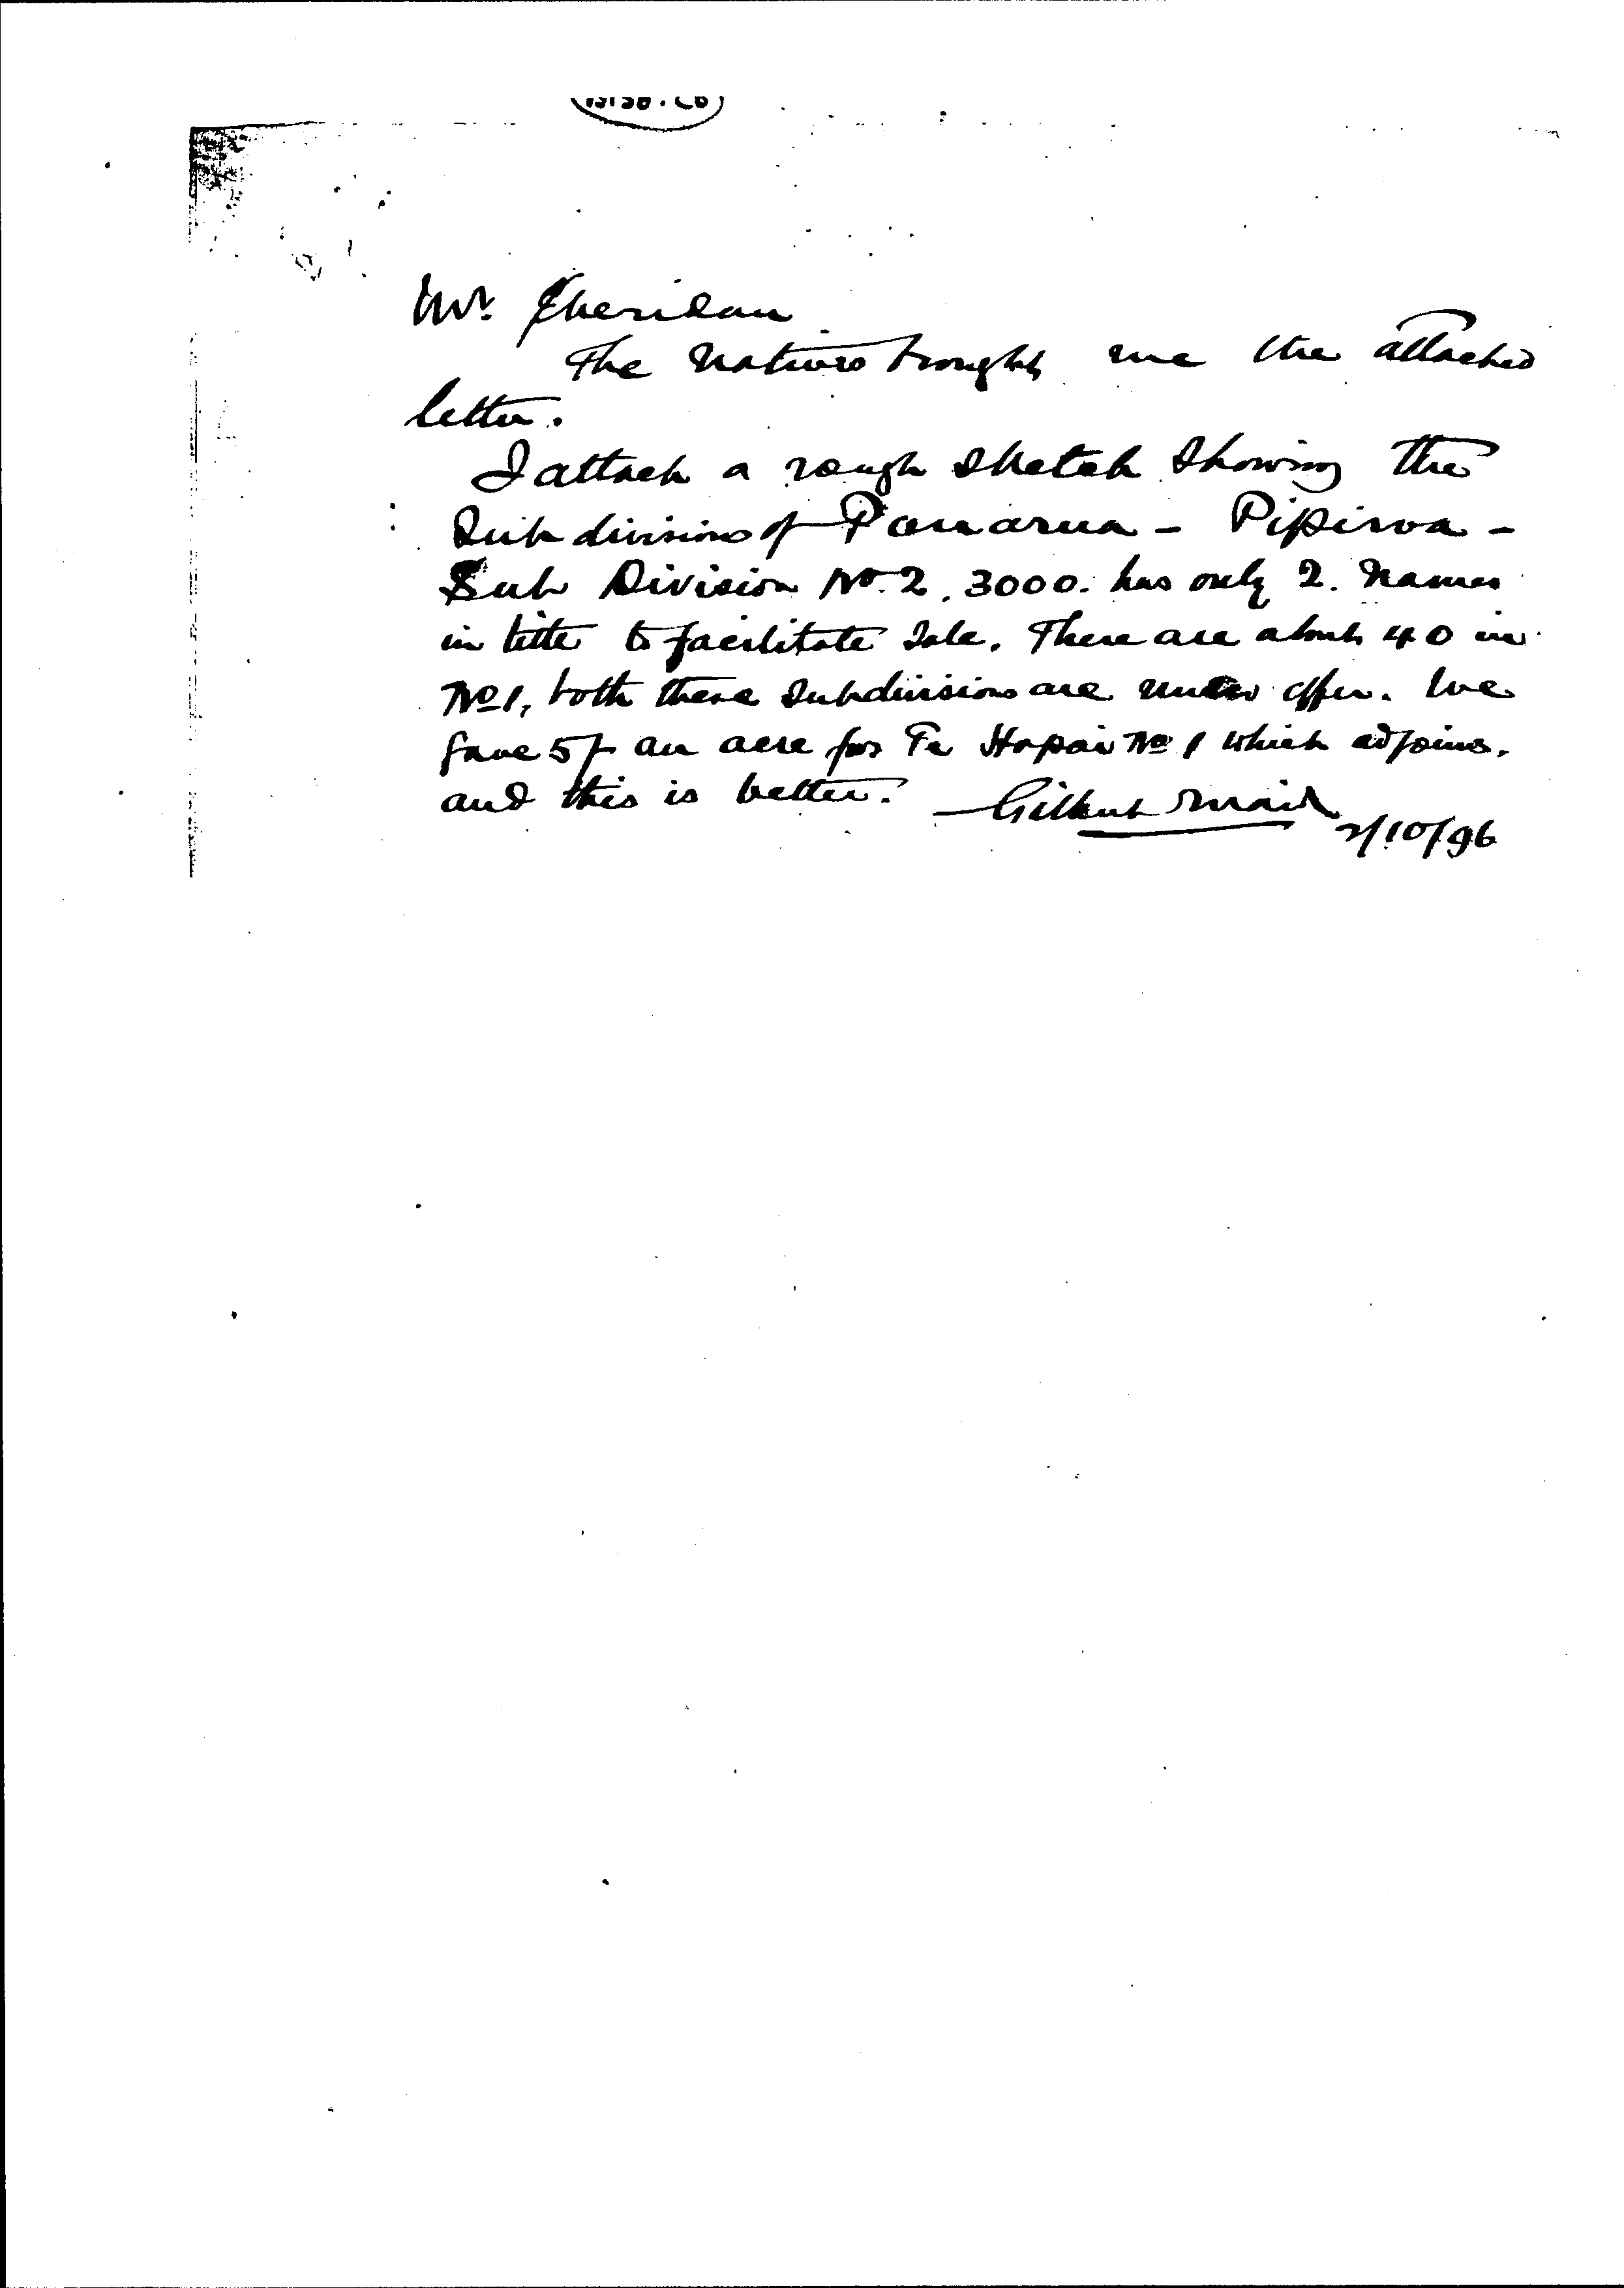 Mr. Sheridan
The Natives brought me the attached
letter.
I attach a rough sketch showing the
Subdivisions of Ponarua - Pipiroa -
Sub Division No. 2, 3000. has only 2. names
in title to facilitate sale. There are about 40 in
No 1, both these subdivisions are under offer. We
gave 5/- an acre for Te Hapai No 1 which adjoins.
and this is better. Gilbert Mair
2/10/96